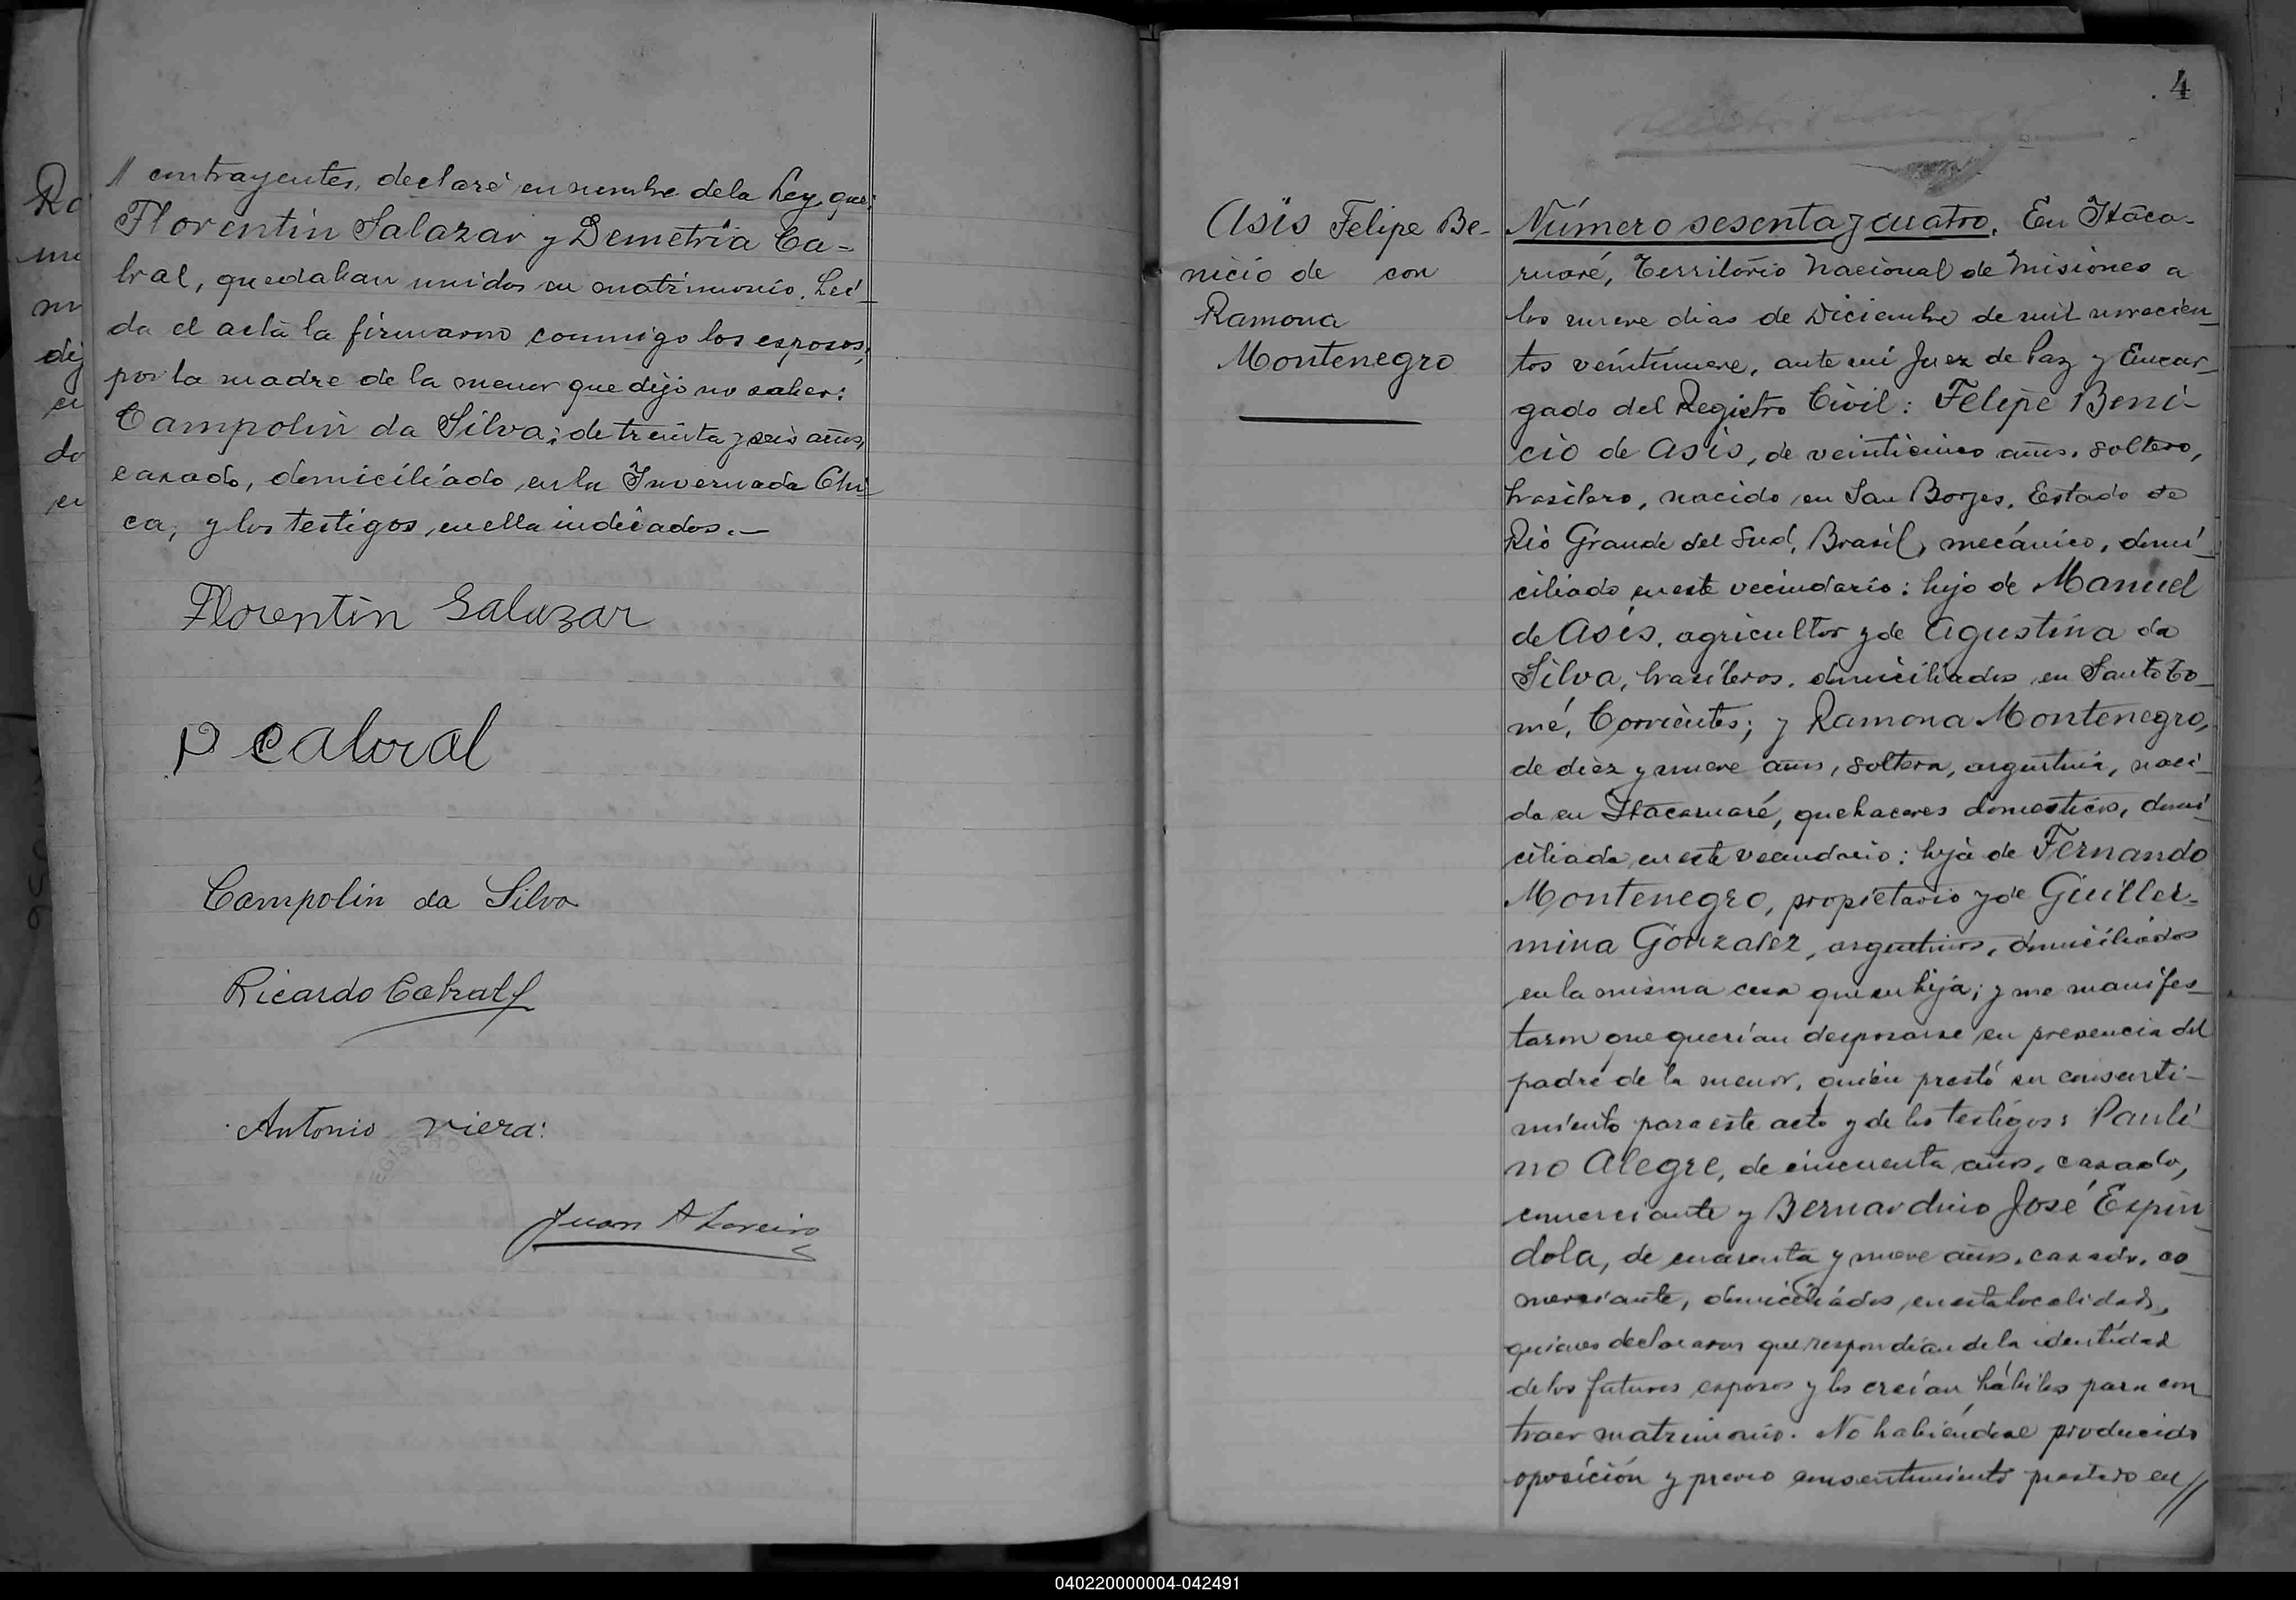 // contrayentes, declaré en nombre dela Ley, que:
Florentin Salazar y Demetria Ca-
bral, quedaban unidos en matrimonio. Leí-
da el acta la firmaron conmigo los esposos;
por la madre de la menor que dijo no saber:
Campolin da Silva; de treinta y seis años,
casado, domiciliado en la Invernada Chi-
ca, y los testigos en ella indicados.—
Florentin Salazar
D Cabral
Campolin da Silva
Ricardo Cabral
Antonio Viera
Juan A Loreiro
4
Asis Felipe Be-
nicio de con
Ramona
Montenegro
Número sesenta y cuatro. En Itaca-
ruaré, Territorio Nacional de Misiones a
los nueve dias de Diciembre de mil novecien-
tos veintinueve, ante mi Juez de Paz y Encar-
gado del Registro Civil: Felipe Beni-
cio de Asis, de veinticinco años, soltero,
brasilero, nacido en San Borges, Estado de
Rio Grande del Sud, Brasil, mecánico, domi-
ciliado en este vecindario: hijo de Manuel
de Asis, agricultor y de Agustina da
Silva, brasileros, domiciliados en Santo To-
mé, Corrientes; y Ramona Montenegro,
de diez y nueve años, soltera, argentina, naci-
da en Itacaruaré, quehaceres domesticos, domi-
ciliada en este vecindario: hija de Fernando
Montenegro, propietario y de Guiller-
mina Gonzalez, argentinos, domiciliados
en la misma casa que su hija; y me manifes-
taron que querían desposarse en presencia del
padre de la menor, quien prestó su consenti-
miento para este acto y de los testigos: Pauli-
no Alegre, de cincuenta años, casado,
comerciante y Bernardino José Espin-
dola, de cuarenta y nueve años, casado, co-
merciante, domiciliados en esta localidad,
quienes declararon que respondían de la identidad
de los futuros esposos y los creían hábiles para con-
traer matrimonio. No habiéndose producido
oposición y previo consentimiento prestado en //
040220000004-042491